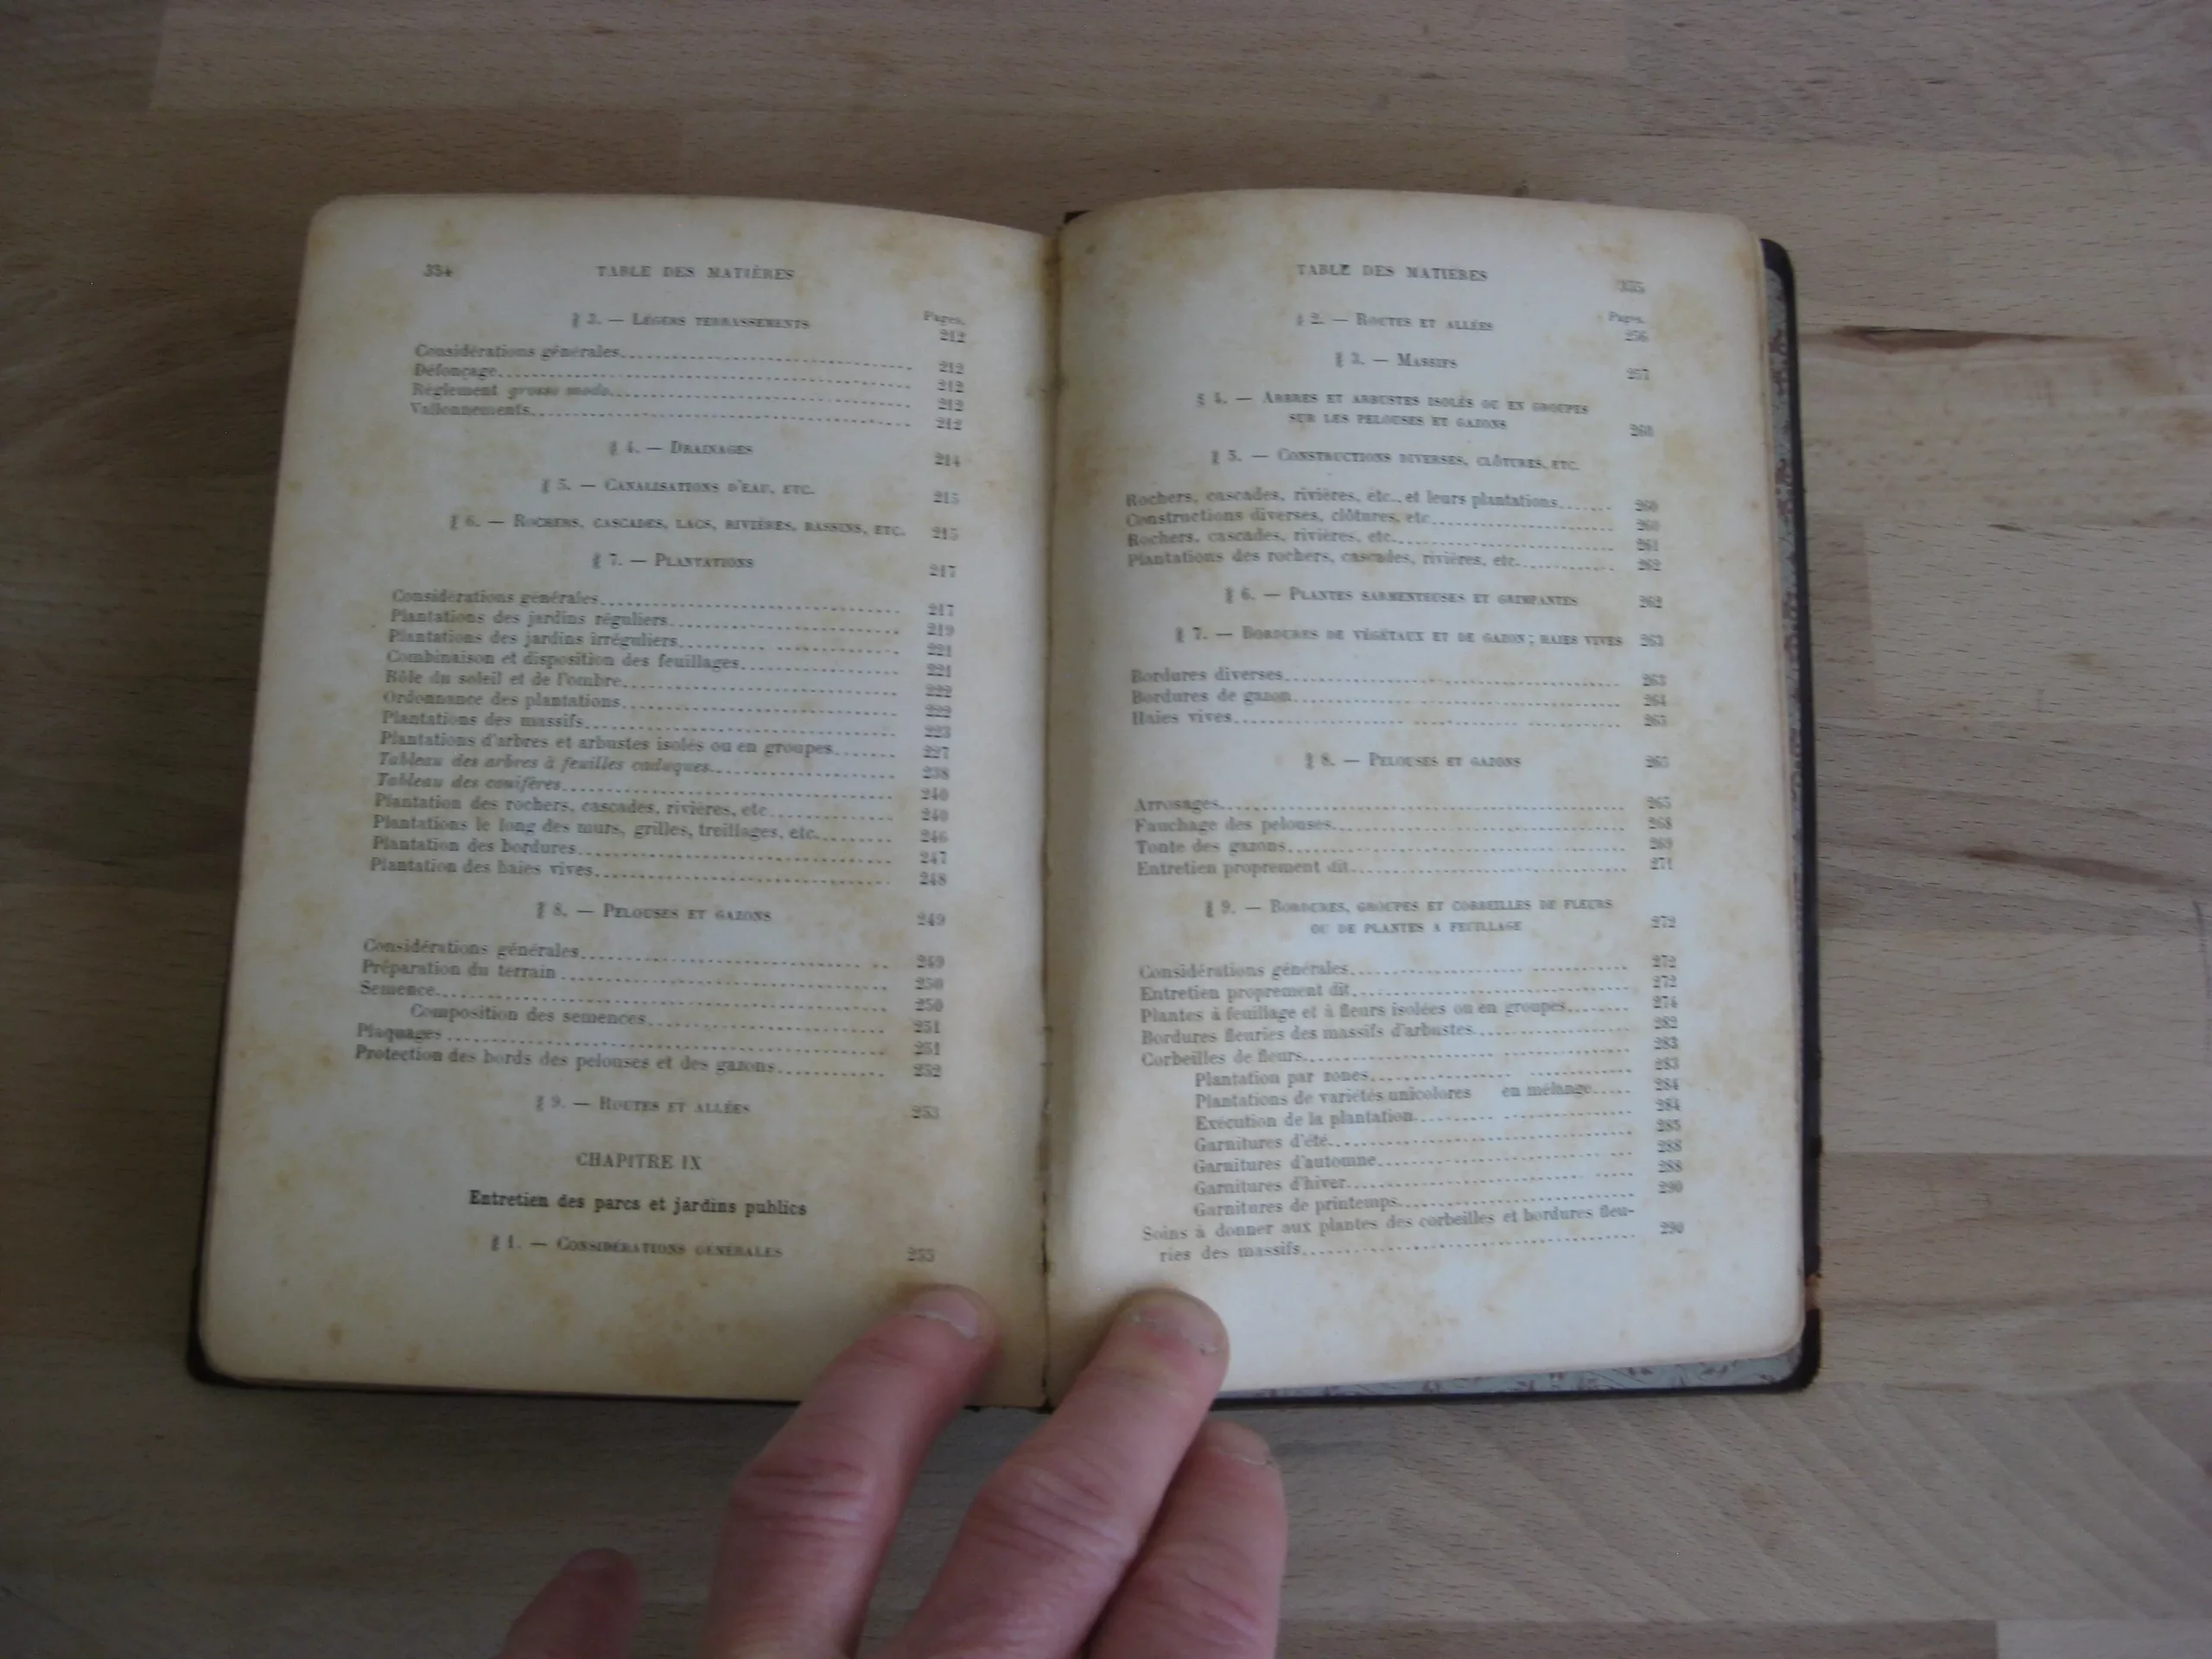 334 TABLE DES MATIÈRES
§ 3. — LÉGERS TERRASSEMENTS
Pages.
212
Considérations générales 212
Défonçage 212
Règlement grosso modo 212
Vallonnements 212
§ 4. — DRAINAGES 214
§ 5. — CANALISATIONS D'EAU, ETC. 215
§ 6. — ROCHERS, CASCADES, LACS, RIVIÈRES, BASSINS, ETC. 215
§ 7. — PLANTATIONS 217
Considérations générales 217
Plantations des jardins réguliers 219
Plantations des jardins irréguliers 221
Combinaison et disposition des feuillages 221
Rôle du soleil et de l'ombre 222
Ordonnance des plantations 222
Plantations des massifs 223
Plantations d'arbres et arbustes isolés ou en groupes 227
Tableau des arbres à feuilles caduques 238
Tableau des conifères 240
Plantation des rochers, cascades, rivières, etc 240
Plantations le long des murs, grilles, treillages, etc. 246
Plantation des bordures 247
Plantation des haies vives 248
§ 8. — PELOUSES ET GAZONS 249
Considérations générales 249
Préparation du terrain 250
Semence 250
Composition des semences 251
Plaquages 251
Protection des bords des pelouses et des gazons 252
§ 9. — ROUTES ET ALLÉES 253
CHAPITRE IX
Entretien des parcs et jardins publics
§ 1. — CONSIDÉRATIONS GÉNÉRALES 255
TABLE DES MATIÈRES 335
Pages.
§ 2. — ROUTES ET ALLÉES 256
§ 3. — MASSIFS 257
§ 4. — ARBRES ET ARBUSTES ISOLÉS OU EN GROUPES
SUR LES PELOUSES ET GAZONS 260
§ 5. — CONSTRUCTIONS DIVERSES, CLÔTURES, ETC.
Rochers, cascades, rivières, etc., et leurs plantations 260
Constructions diverses, clôtures, etc 260
Rochers, cascades, rivières, etc. 261
Plantations des rochers, cascades, rivières, etc. 262
§ 6. — PLANTES SARMENTEUSES ET GRIMPANTES 262
§ 7. — BORDURES DE VÉGÉTAUX ET DE GAZON ; HAIES VIVES 263
Bordures diverses 263
Bordures de gazon 264
Haies vives 265
§ 8. — PELOUSES ET GAZONS 265
Arrosages 265
Fauchage des pelouses 268
Tonte des gazons 269
Entretien proprement dit 271
§ 9. — BORDURES, GROUPES ET CORBEILLES DE FLEURS
OU DE PLANTES A FEUILLAGE 272
Considérations générales 272
Entretien proprement dit 272
Plantes à feuillage et à fleurs isolées ou en groupes 274
Bordures fleuries des massifs d'arbustes 282
Corbeilles de fleurs 283
Plantation par zones 283
Plantations de variétés unicolores en mélange 284
Exécution de la plantation 284
Garnitures d'été 285
Garnitures d'automne 288
Garnitures d'hiver 288
Garnitures de printemps 290
Soins à donner aux plantes des corbeilles et bordures fleu-
ries des massifs 290